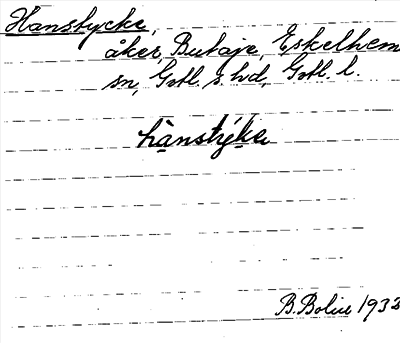 Hanstycke,
åker, Butaje, Eskelhem
sn, Gotl. s. hd, Gotl. l.
hànstýke
B. Bolin 1932